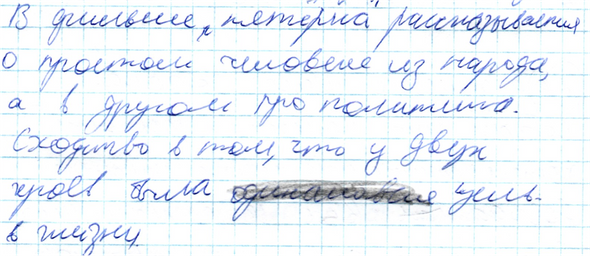 В фильме „пятерка рассказывается
о простом человеке из народа,
а в другом про политика.
Сходство в том, что у двух
героев была цель
в жизни